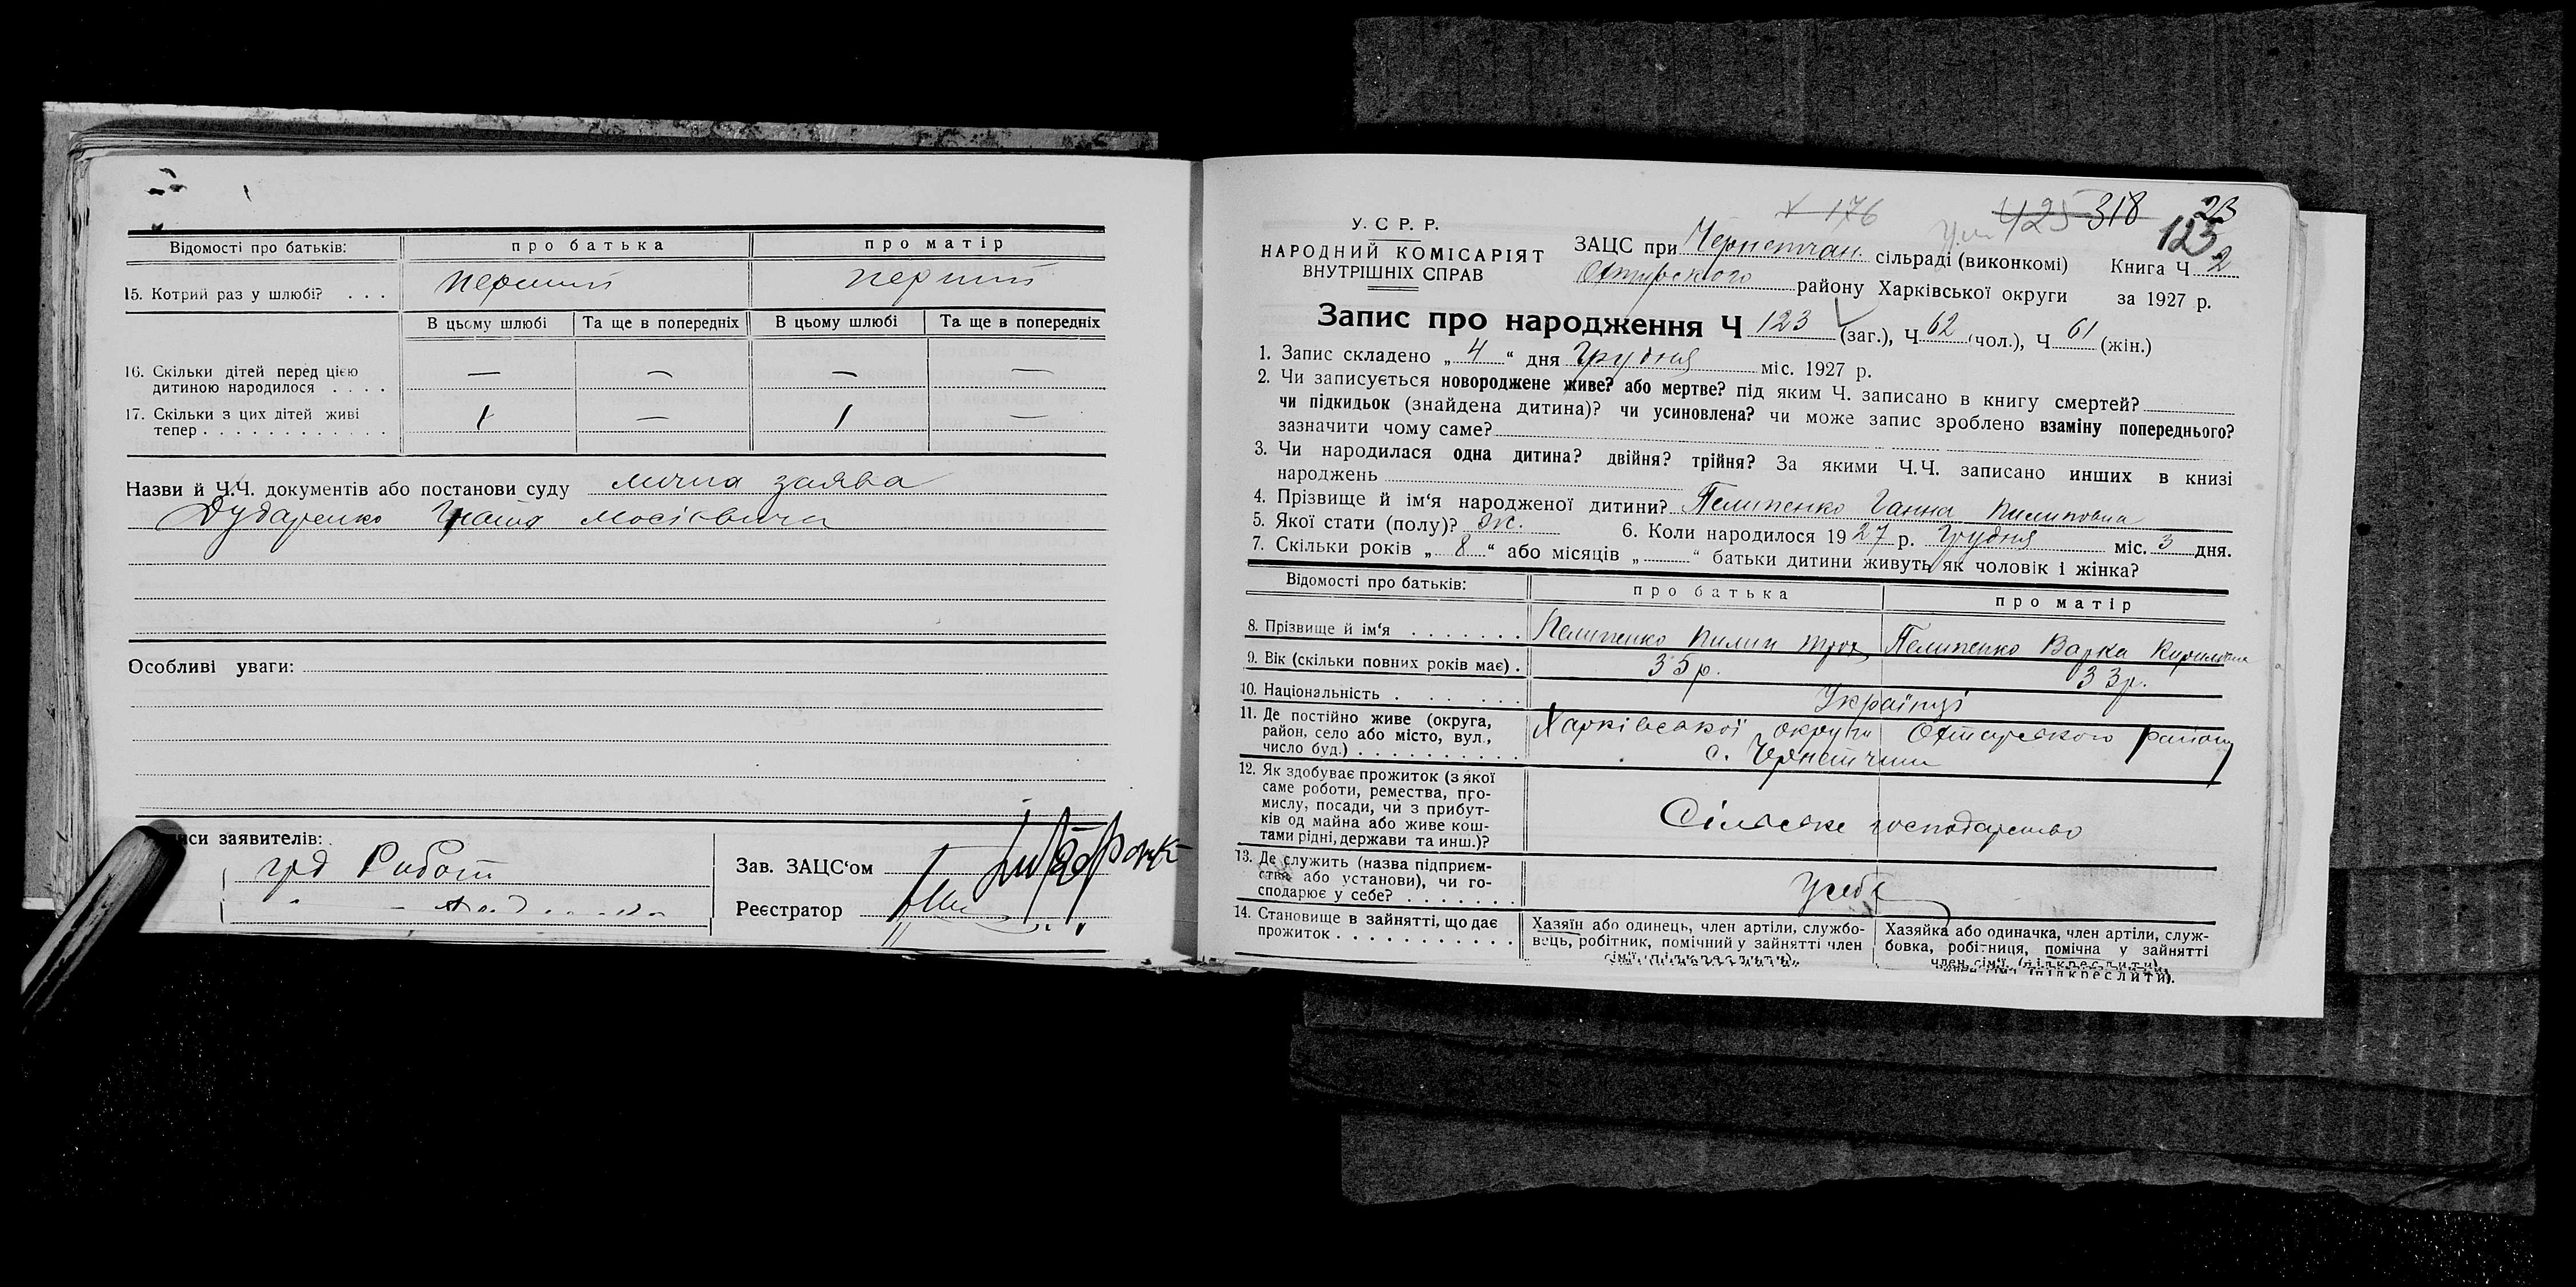 Відомості про батьків: про батька про матір
15. Котрий раз у шлюбі? . . . перший перший
В цьому шлюбі Та ще в попередніх В цьому шлюбі Та ще в попередніх
16. Скільки дітей перед цією — — — —
дитиною народилося . . . .
17. Скільки з цих дітей живі 1 — 1 —
тепер . . . . . . . . . . . .
Назви й Ч.Ч. документів або постанови суду лична заява
Дударенко Гната Мосієвича
Особливі уваги:
иси заявителів:
грд
Зав. ЗАЦС‘ом
Реєстратор
176 425 318 23
У. С Р. Р. 123
НАРОДНИЙ КОМІСАРІЯТ ЗАЦС при Чернетчан. сільраді (виконкомі) Книга Ч 2
ВНУТРІШНІХ СПРАВ Охтирського району Харківської округи за 1927 р.
Запис про народження Ч 123 (заг.), Ч 62 (чол.), Ч 61 (жін.)
1. Запис складено „ 4 “ дня Грудня міс. 1927 р.
2. Чи записується новороджене живе? або мертве? під яким Ч. записано в книгу смертей?
чи підкидьок (знайдена дитина)? чи усиновлена? чи може запис зроблено взаміну попереднього?
зазначити чому саме?
3. Чи народилася одна дитина? двійня? трійня? За якими Ч.Ч. записано инших в книзі
народжень
4. Прізвище й ім‘я народженої дитини? Пелипенко Ганна Пилиповна
5. Якої стати (полу)? ж. 6. Коли народилося 19 27 р. Грудня міс. 3 дня.
7. Скільки років „ 8 “ або місяців „ “ батьки дитини живуть як чоловік і жінка?
Відомості про батьків: про батька про матір
8. Прізвище й ім‘я . . . . . . . Пелипенко Пилип Трох Пелипенко Варка Кириловна
9. Вік (скільки повних років має) . 35 р. 33 р.
10. Національність . . . . . . Українці
11. Де постійно живе (округа, Харківської округи Охтирського району
район, село або місто, вул., с. Чернетчина
число буд.) . . . . . . . . . .
12. Як здобуває прожиток (з якої
саме роботи, ремества, про-
мислу, посади, чи з прибут- Сільське господарство
ків од майна або живе кош-
тами рідні, держави та инш.)?
13. Де служить (назва підприєм-
ства або установи), чи го- У себе
сподарює у себе? . . . . . . .
14. Становище в зайнятті, що дає Хазяїн або одинець, член артіли, службо- Хазяйка або одиначка, член артіли, служ-
прожиток . . . . . . . . . . . вець, робітник, помічний у зайнятті член бовка, робітниця, помічна у зайнятті
сім‘ї (підкреслити). член сім‘ї (підкреслити).